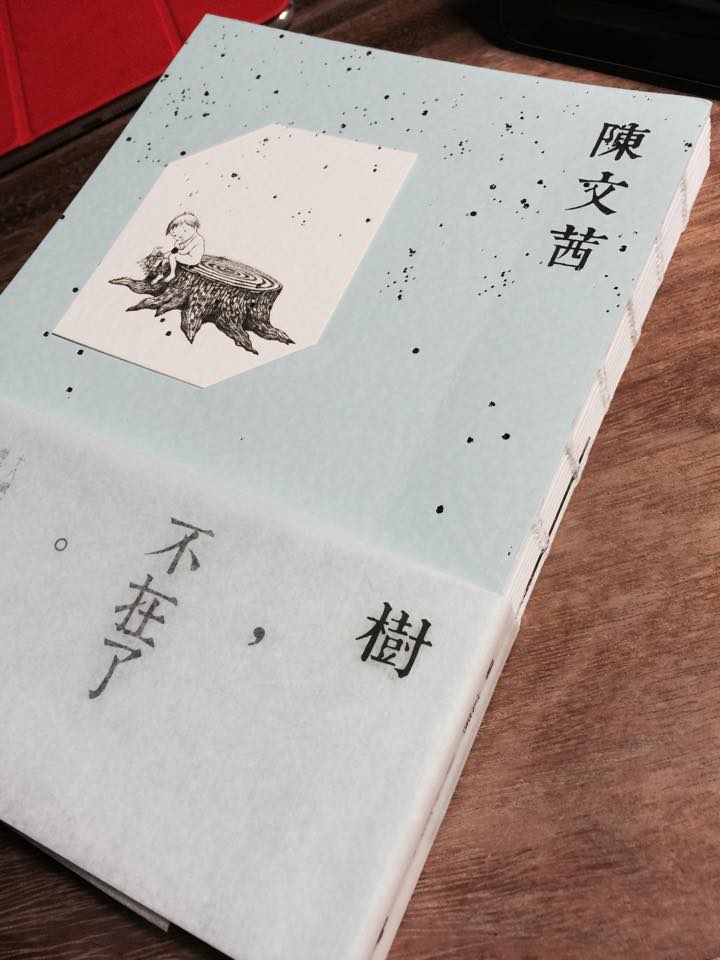 陳文茜
樹
，
不在了
。